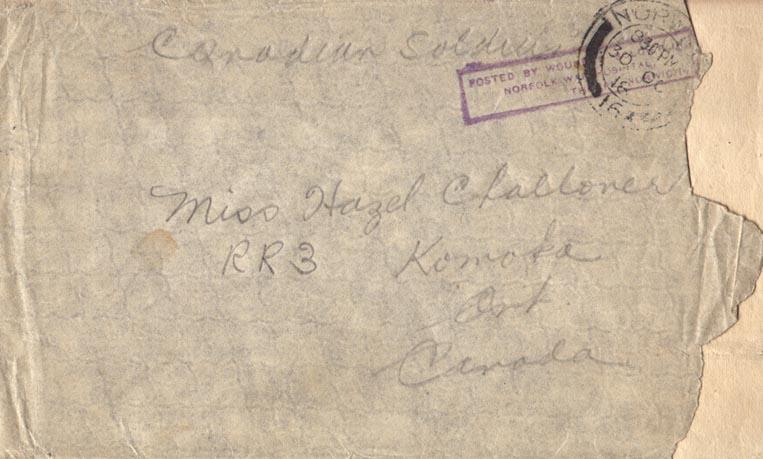 Canadian Soldier
NORW
POSTED BY HOSPITAL,
NORFOLK
TH
8 30 PM
30 OC
18
Miss Hazel Challoner
RR3 Komoka
Ont.
Canada